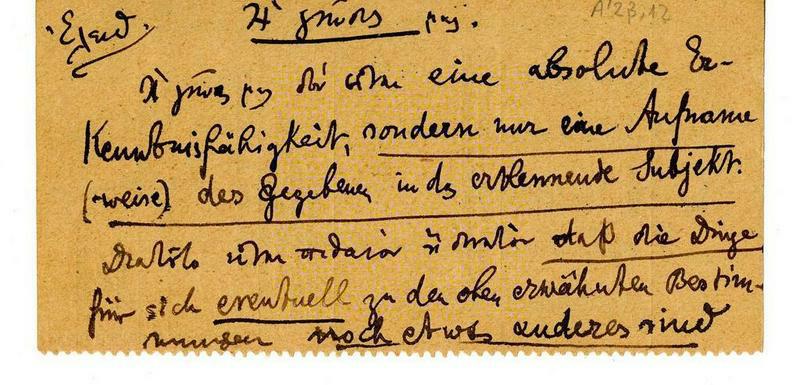 Ἡ γνῶσις μας.
Ἡ γνῶσις μας δὲν εἶναι eine absolute Er-
kenntnisfähigkeit, sondern nur eine Aufname
(-weise) des Gegebenen in das erkennende Subjekt.
εἶναι daß die Dinge
für sich eventuell zu den oben erwähnten Bestim-
mungen noch etwas anderes sind